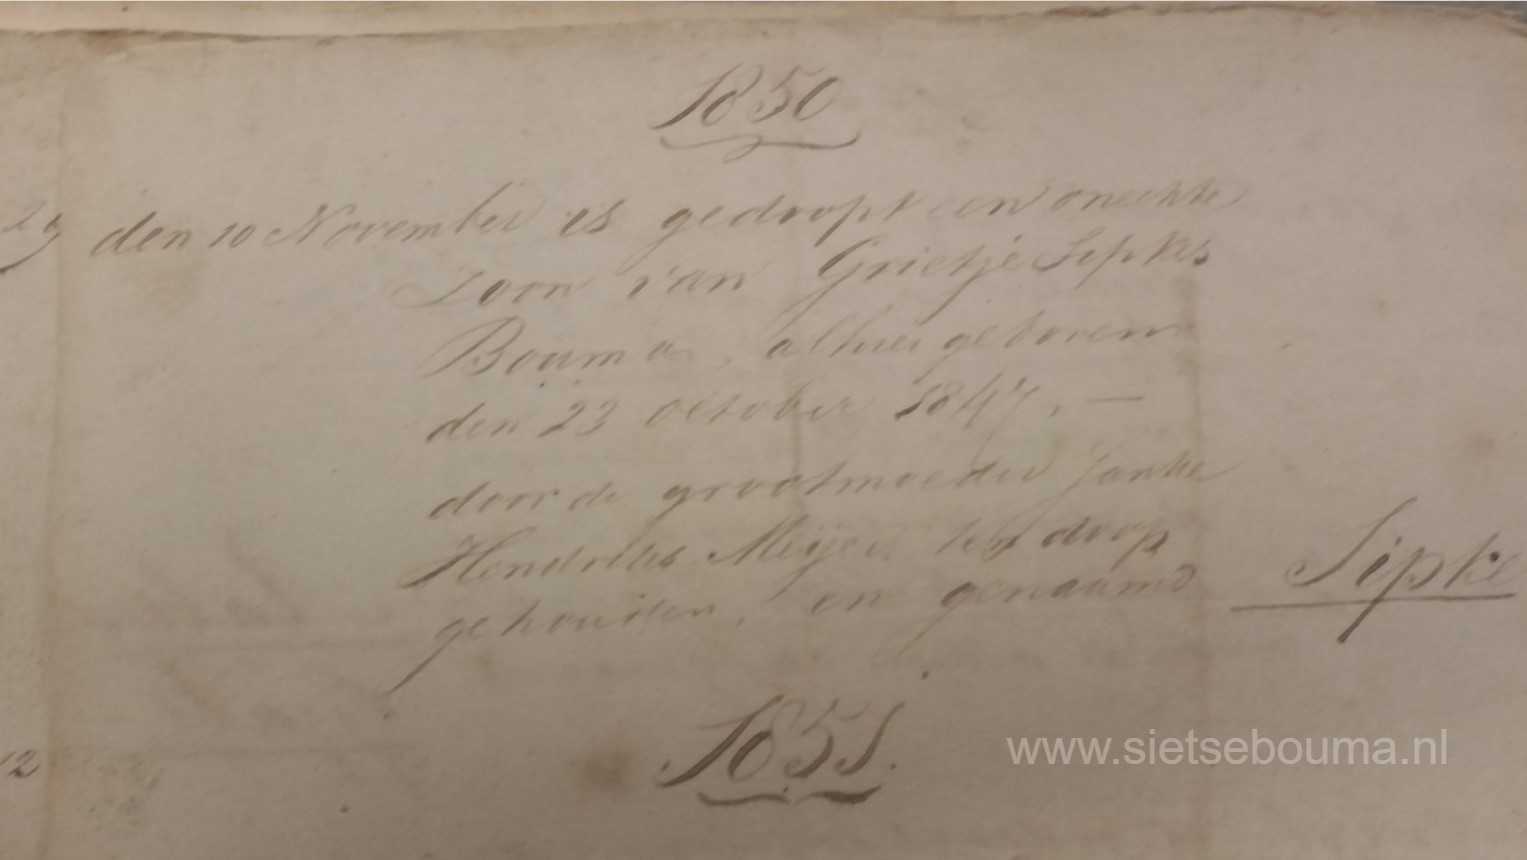 1850
den 10 November is gedoopt een onechte
Zoon van Grietje Sipkes
Bouma, alhier geboren
den 23 October 1847, —
door de grootmoeder Janke
Hendriks Meijer ten doop
gehouden, en genaamd Sipke
1851.
12
www.sietsebouma.nl